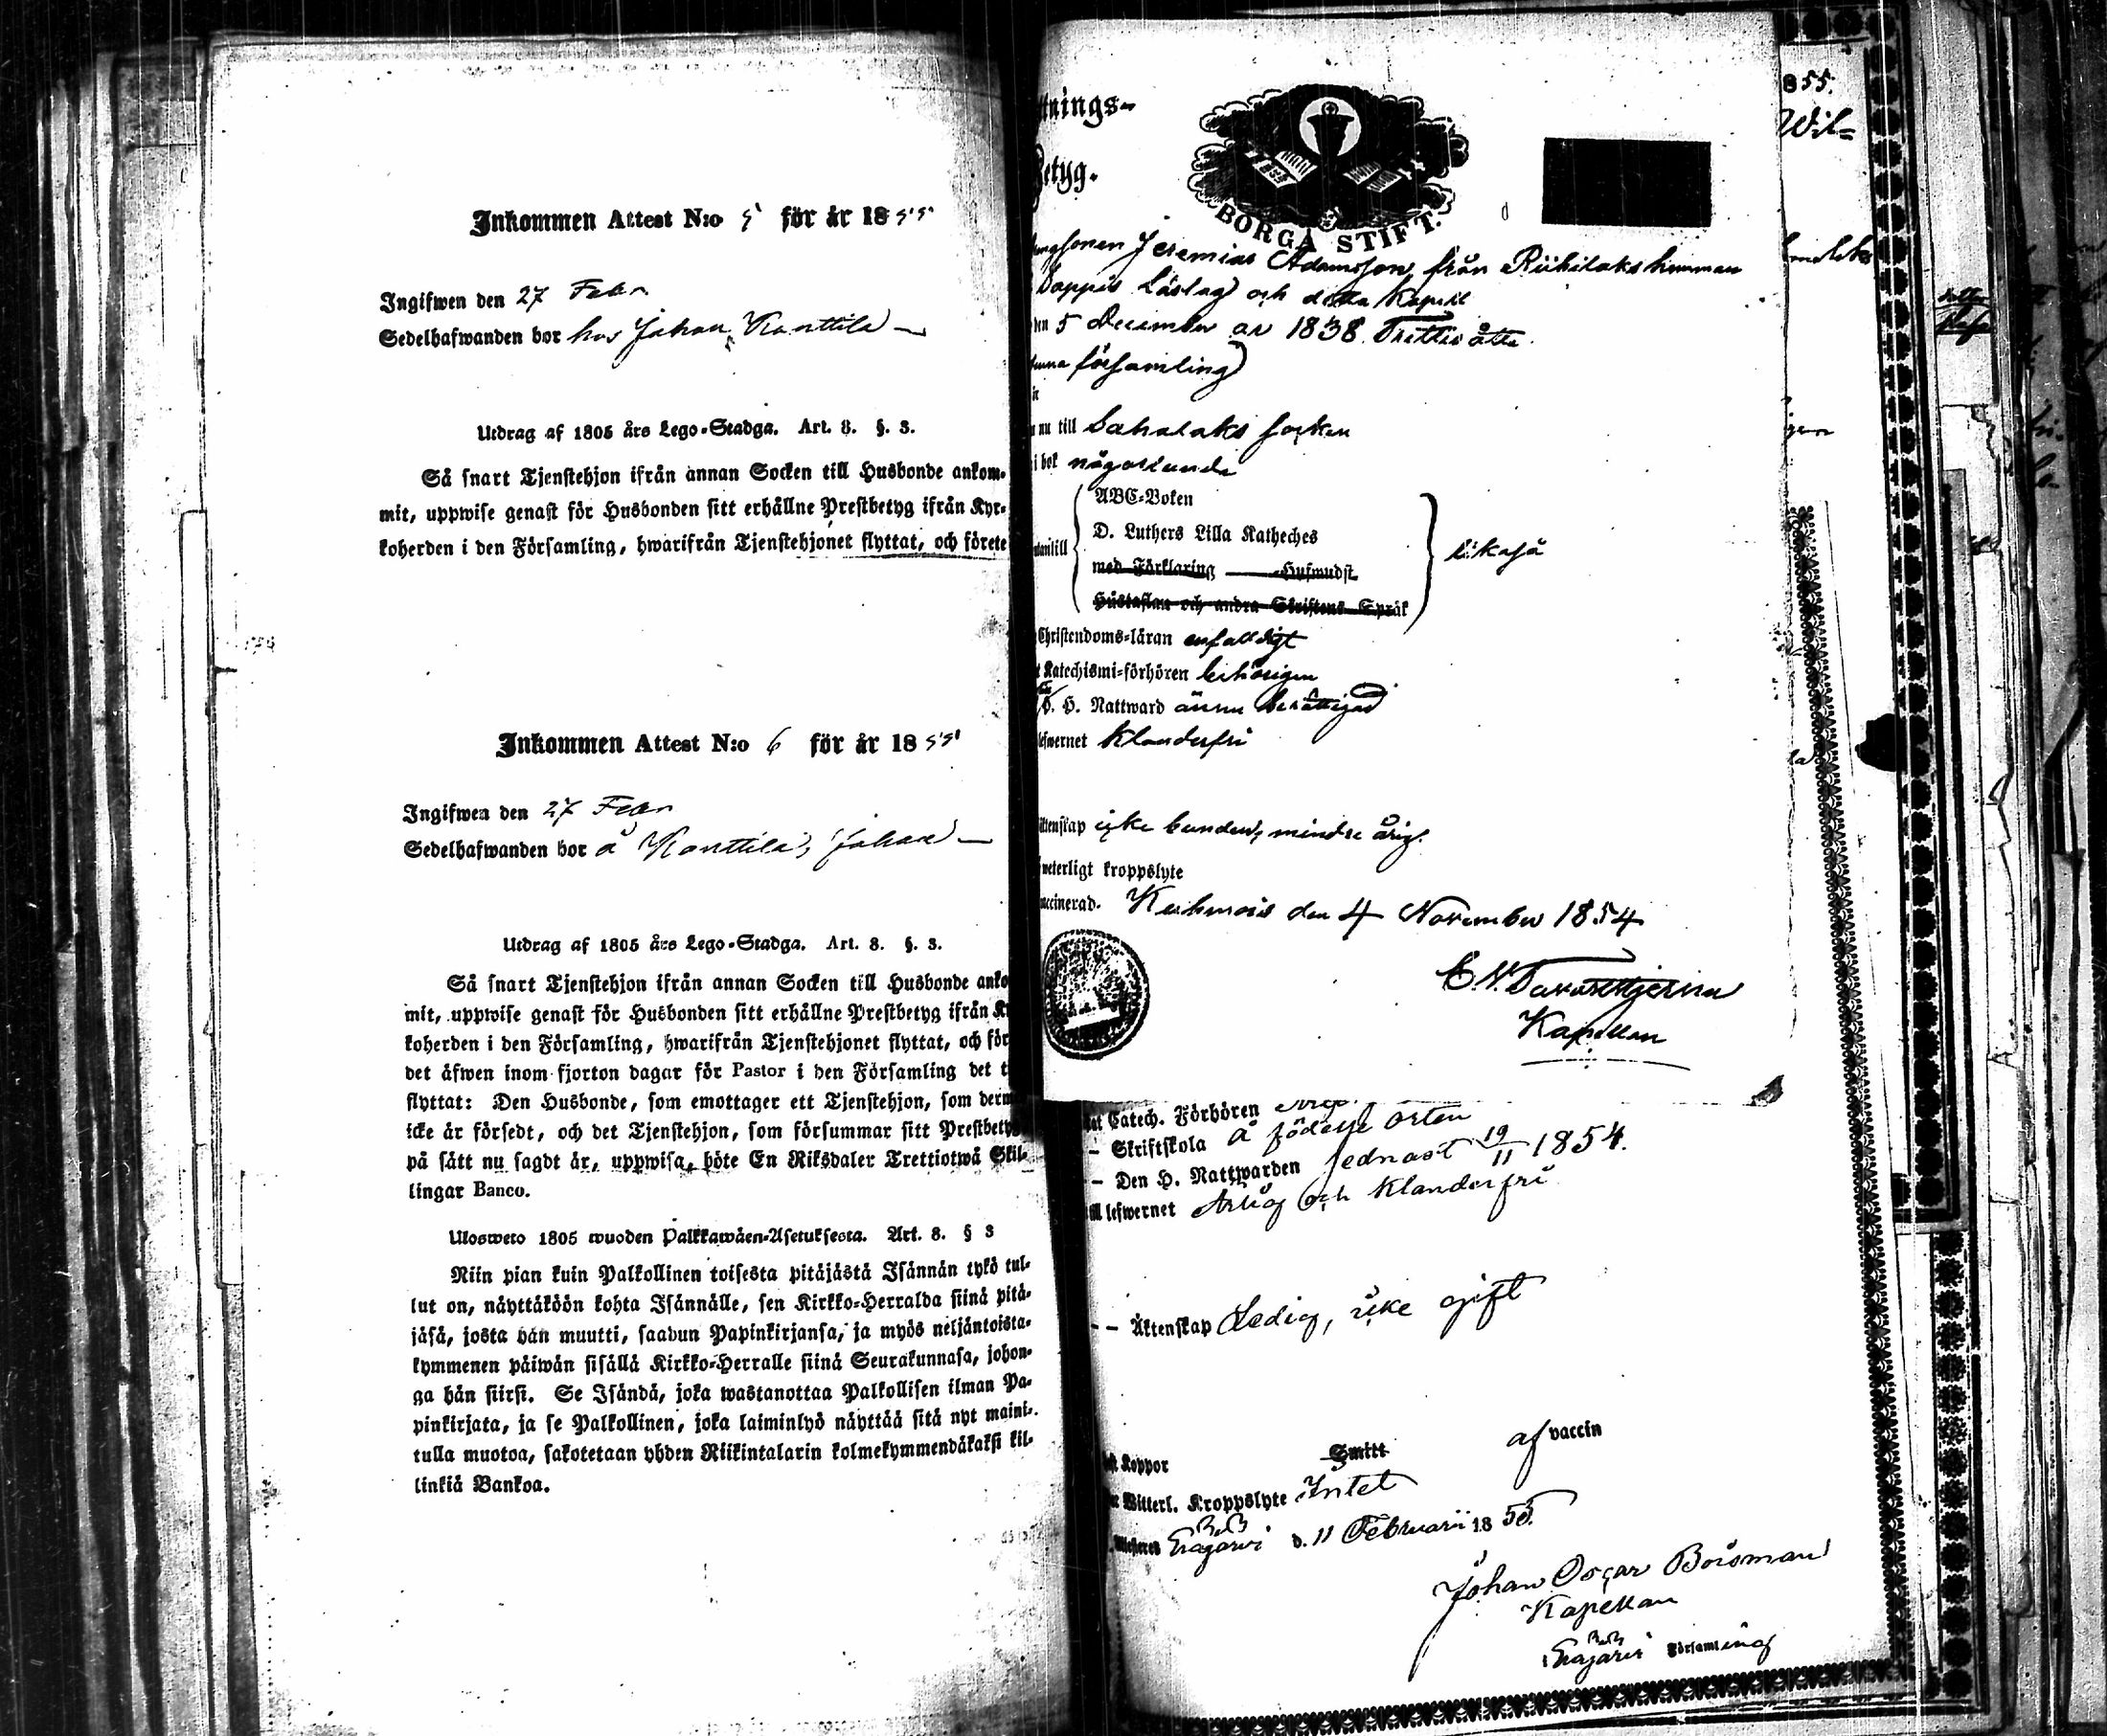 Inkommen Attest N:o 5 för år 1855
Ingifwen den 27 Febr
Sedelhafwanden bor hos Johan Konttila
Utdrag af 1805 års Lego-Stadga. Art. 8. §. 3.
Så snart Tjenstehjon ifrån annan Socken till Husbonde ankom-
mit, uppwise genast för Husbonden sitt erhållne Prestbetyg ifrån Kyr-
koherden i den Församling, hwarifrån Tjenstehjonet flyttat, och förete
Inkommen Attest N:o 6 för år 1855
Ingifwen den 27 Febr
Sedelhafwanden bor å Konttila, Johan
Utdrag af 1805 års Lego-Stadga. Art. 8. §. 3.
Så snart Tjenstehjon ifrån annan Socken till Husbonde anko
mit, uppwise genast för Husbonden sitt erhållne Prestbetyg ifrån K
koherden i den Församling, hwarifrån Tjenstehjonet flyttat, och för
det äfwen inom fjorton dagar för Pastor i den Församling det t
flyttat: Den Husbonde, som emottager ett Tjenstehjon, som derm
icke är försedt, och det Tjenstehjon, som försummar sitt Prestbetyg
på sätt nu sagdt är, uppwisa, böte En Riksdaler Trettiotwå Skil-
lingar Banco.
Ulosweto 1805 wuoden Palkkawäen-Asetuksesta. Art. 8. § 3
Niin pian kuin Palkollinen toisesta pitäjästä Isännän tykö tul-
lut on, näyttäköön kohta Isännälle, sen Kirkko-Herralda siinä pitä-
jäsä, josta hän muutti, saadun Papinkirjansa, ja myös neljäntoista-
kymmenen päiwän sisällä Kirkko-Herralle siinä Seurakunnasa, johon-
ga hän siirsi. Se Isändä, joka wastanottaa Palkollisen ilman Pa-
pinkirjata, ja se Palkollinen, joka laiminlyö näyttää sitä nyt maini-
tulla muotoa, sakotetaan yhden Riikintalarin kolmekymmendäkaksi kil-
linkiä Bankoa.
ttnings-
Betyg.
BORGÅ STIFT.
Jeremias Adamsson från Riihilaks hemman
och detta Kapell
den 5 December ar 1838. Trettio åtta
församling)
nu till Sahalaks socken
i bok någorlunda
ABC-Boken
D. Luthers Lilla Katheches
med Förklaring Hufwudst.
Hustaflan och andra Skriftens Språk
likaså
Christendoms-läran enfaldigt
Katechismi-förhören behörigen
H. Nattward ännu berättigad
lefwernet klanderfri
ktenskap icke bunden, mindre årig.
weterligt kroppslyte
accinerad. Kuhmois den 4 November 1854
Kapellan
Catech. Förhören
– Skriftskola å födelse orten
– Den H. Nattwarden sednast 19/11 1854.
till lefwernet Ärlig och klanderfri
– – Äktenskap Ledig, icke gift
Koppor Smitt af vaccin
Witterl. Kroppslyte Intet
Eräjärvi d. 11 Februarii 1855.
Johan Oscar Boisman
Kapellan
Eräjärvi Församling
855.
Wil=